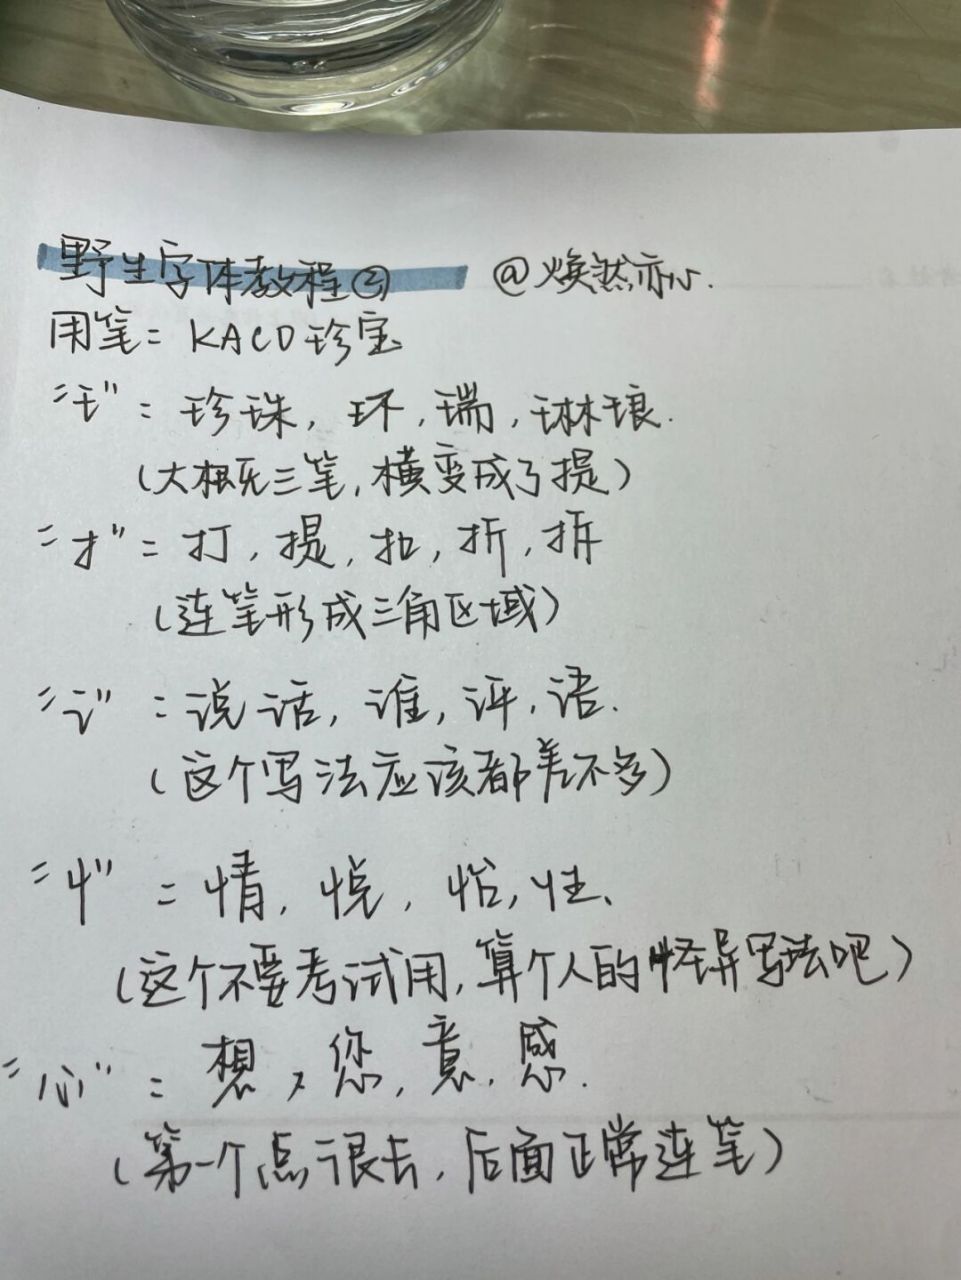 野生字体教程② @焕然亦心.
用笔= KACO珍宝
"王"：珍珠, 环, 瑞, 琳琅.
(大概先三笔, 横变成了提)
"扌"：打, 提, 扣, 折, 拆
(连笔形成三角区域)
"讠"：说话, 谁, 评, 语.
(这个写法应该都差不多)
"忄"：情, 悦, 怡, 性、
(这个不要考试用, 算个人的怪异写法吧)
"心"：想, 您, 意, 感.
(第一个点很长, 后面正常连笔)